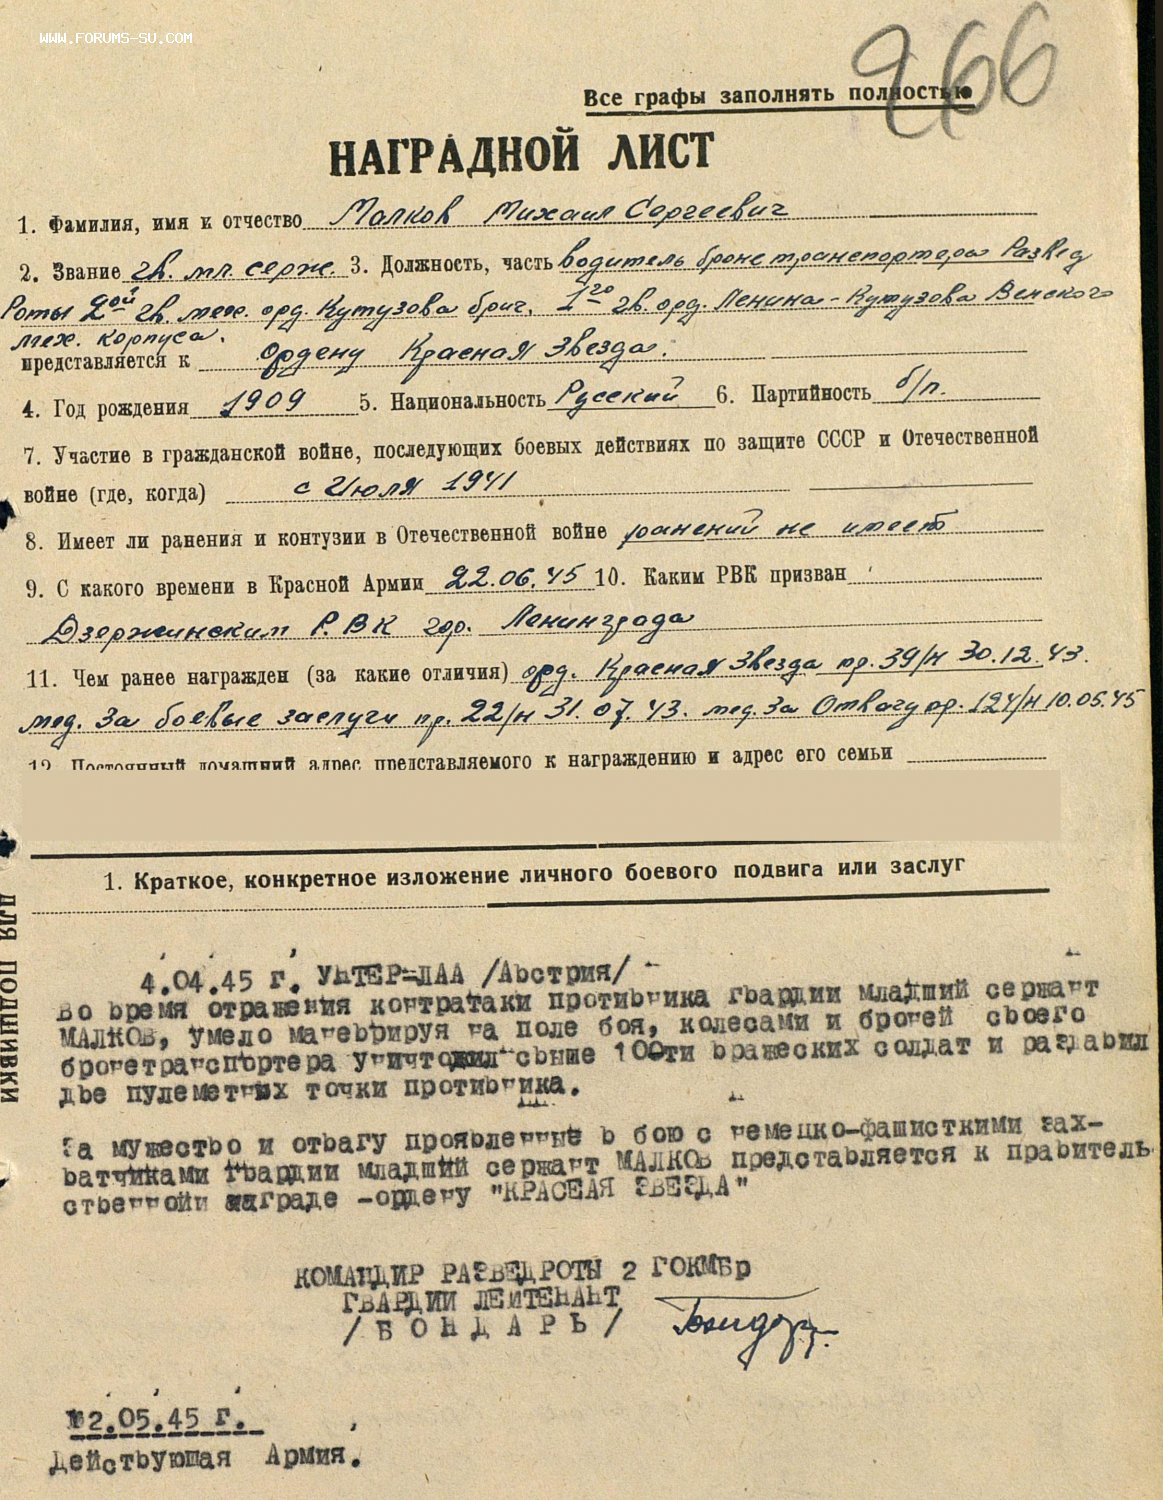 WWW.FORUMS-SU.COM
266
Все графы заполнять полностью
НАГРАДНОЙ ЛИСТ
1. Фамилия, имя и отчество Малков Михаил Сергеевич
2. Звание гв. мл. серж. 3. Должность, часть водитель бронетранспортера Развед
Роты 2ой гв. мех. орд. Кутузова бриг. 1го гв. орд. Ленина-Кутузова Венского
мех. корпуса.
представляется к ордену Красная Звезда.
4. Год рождения 1909 5. Национальность Русский 6. Партийность б/п.
7. Участие в гражданской войне, последующих боевых действиях по защите СССР и Отечественной
войне (где, когда) с Июля 1941
8. Имеет ли ранения и контузии в Отечественной войне ранений не имеет
9. С какого времени в Красной Армии 22.06.45 10. Каким РВК призван
Дзержинским Р.В.К гор. Ленинграда
11. Чем ранее награжден (за какие отличия) орд. Красная Звезда пр. 39/н 30.12.43.
мед. За боевые заслуги пр. 22/н 31.07.43. мед. За Отвагу пр. 124/н 10.05.45
12. Постоянный домашний адрес представляемого к награждению и адрес его семьи
1. Краткое, конкретное изложение личного боевого подвига или заслуг
ДЛЯ ПОДШИВКИ
4.04.45 г. УНТЕР-ЛАА /Австрия/
Во время отражения контратаки противника гвардии младший сержант
МАЛКОВ, умело маневрируя на поле боя, колесами и броней своего
бронетранспортера уничтожил свыше 100ти вражеских солдат и раздавил
две пулеметных точки противника.
За мужество и отвагу проявленные в бою с немецко-фашисткими зах-
ватчиками гвардии младший сержант МАЛКОВ представляется к правитель-
ственной награде -ордену "КРАСНАЯ ЗВЕЗДА"
КОМАНДИР РАЗВЕДРОТЫ 2 ГОКМБр
ГВАРДИИ ЛЕЙТЕНАНТ
/БОНДАРЬ/
12.05.45 г.
Действующая Армия.